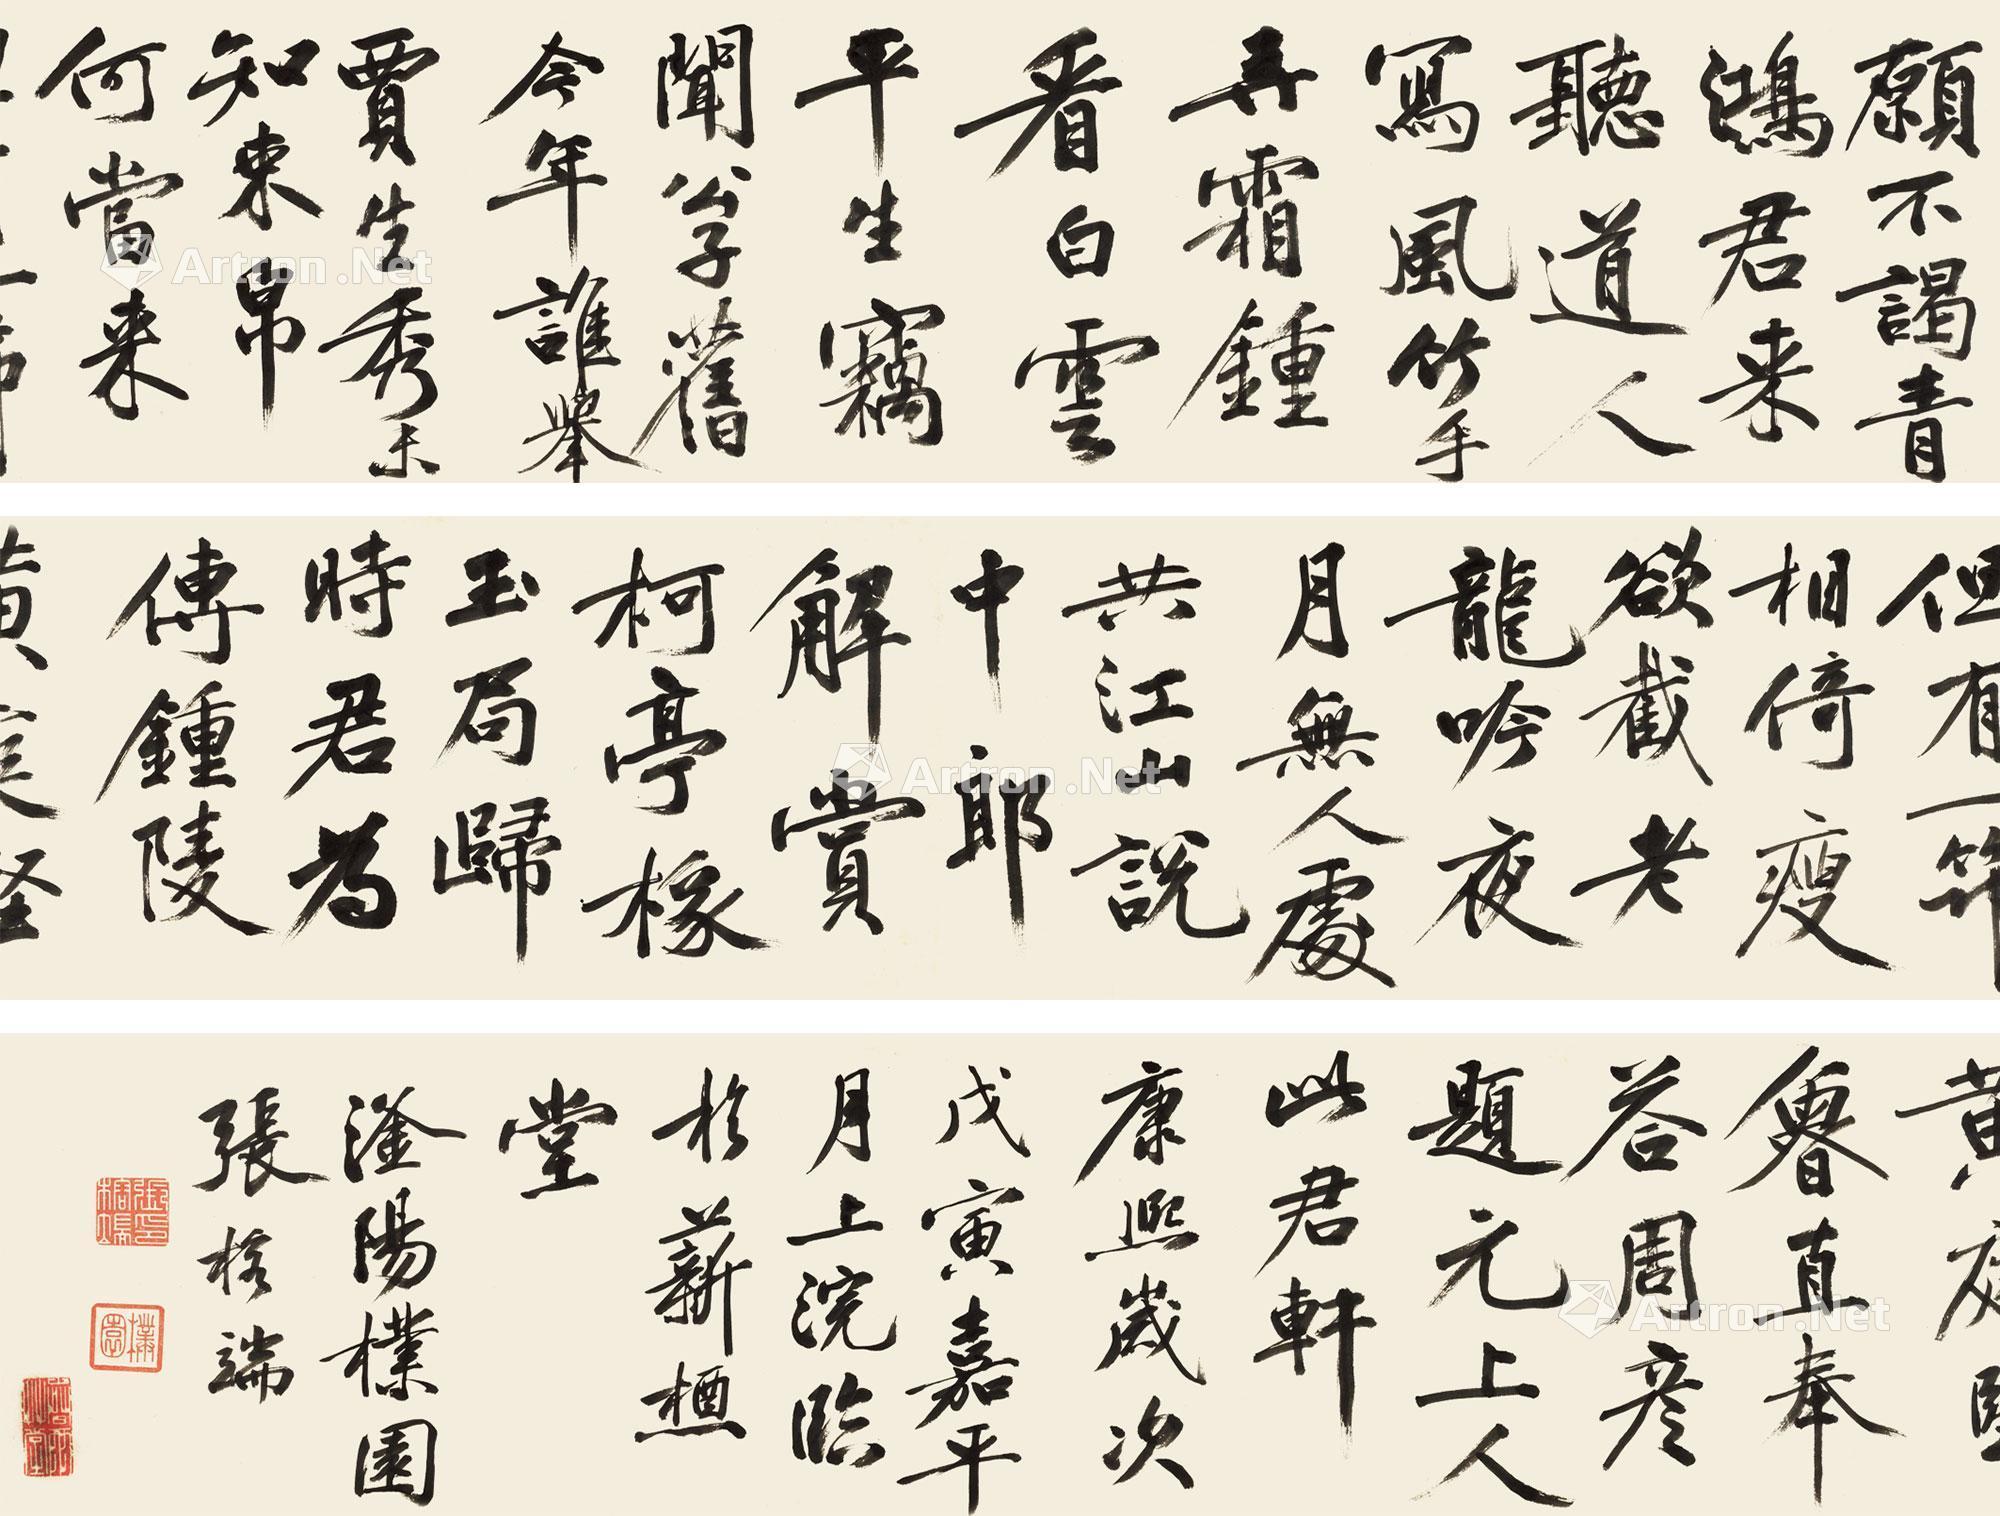 願不謁青
鴻君来
聽道人
寫風竹手
弄霜鍾
看白雲
平生竊
聞公子舊
今年誰舉
賈生秀未
知束帛
何當来
但有一
相倚瘦
欲截老
龍吟夜
月無人處
共江山說
中郎
解賞
柯亭椽
玉局歸
時君為
傳鍾陵
黄庭堅
魯直奉
答周彦
題元上人
此君軒
康熙歲次
戊寅嘉平
月上浣臨
於薪槱
堂
滏陽樸園
張榕端
張印榕端
樸園
Artron.Net
Artron.Net
Artron.Net